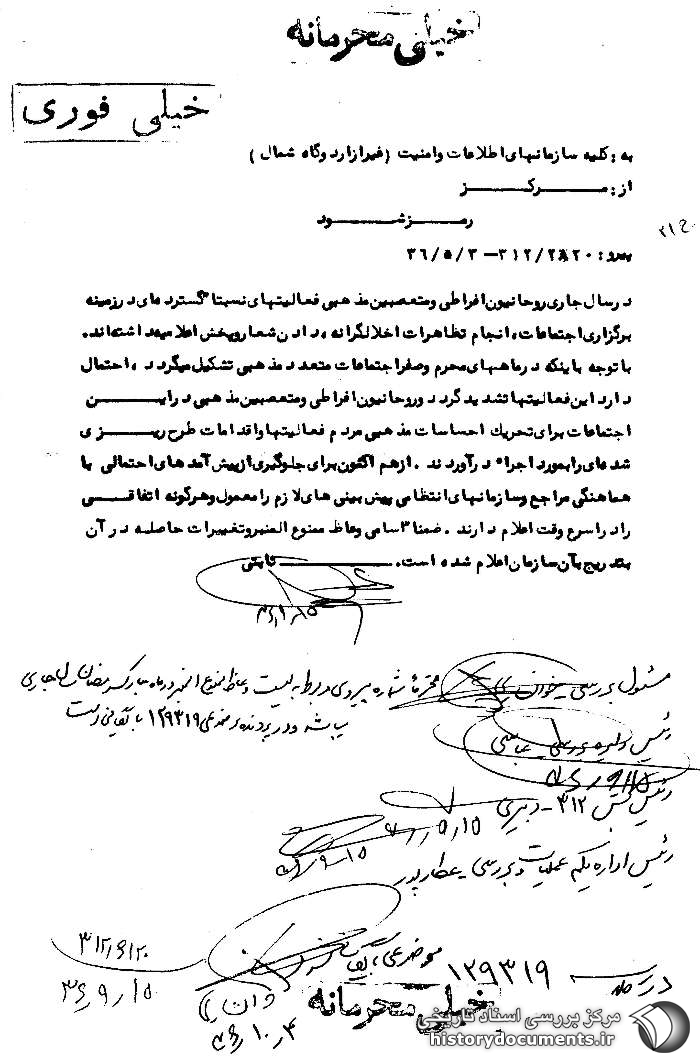 خیلی محرمانه
خیلی فوری
به : کلیه سازمانهای اطلاعات وامنیت (غیرازاردوگاه شمال )
از : مرکز
رمزشود
۳۱۲/۲۸۲۰ - ۳۶/۵/۳
درسال جاری روحانیون افراطی ومتعصبین مذهبی فعالیتهای نسبتا" گسترده ای درزمینه
برگزاری اجتماعات ، انجام تظاهرات اخلالگرانه ، دادن شعاروپخش اعلامیه داشته اند.
با توجه باینکه درماههای محرم وصفراجتماعات متعدد مذهبی تشکیل میگردد ، احتمال
دارداین فعالیتها تشدید گردد وروحانیون افراطی ومتعصبین مذهبی دراین
اجتماعات برای تحریك احساسات مذهبی مردم فعالیتها واقدامات طرح ریزی
شده ای رابمورد اجراء درآورند . ازهم اکنون برای جلوگیری ازپیش آمدهای احتمالی با
هماهنگی مراجع وسازمانهای انتظامی پیش بینی های لازم رامعمول وهرگونه اتفاقی
رادراسرع وقت اعلام دارند . ضمنا" اسامی وعاظ ممنوع المنبروتغییرات حاصله درآن
بتدریج بآن سازمان اعلام شده است. ثابتی
مسئول بررسی
محترماً شماره پیروی مربوط به لیست وعاظ ممنوع المنبر در ماه مبارک رمضان سال جاری
میباشد و در پرونده موضوعی ۱۲۹۳۱۹ بایگانی است
رئیس دایره بررسی
رئیس بخش ۳۱۲ - دبیری
رئیس اداره یکم عملیات و بررسی - عطارپور
۳۱۲
۳۶,۹,۱۵
۱۲۹۳۱۹
خیلی محرمانه
مرکز بررسی اسناد تاریخی
historydocuments.ir